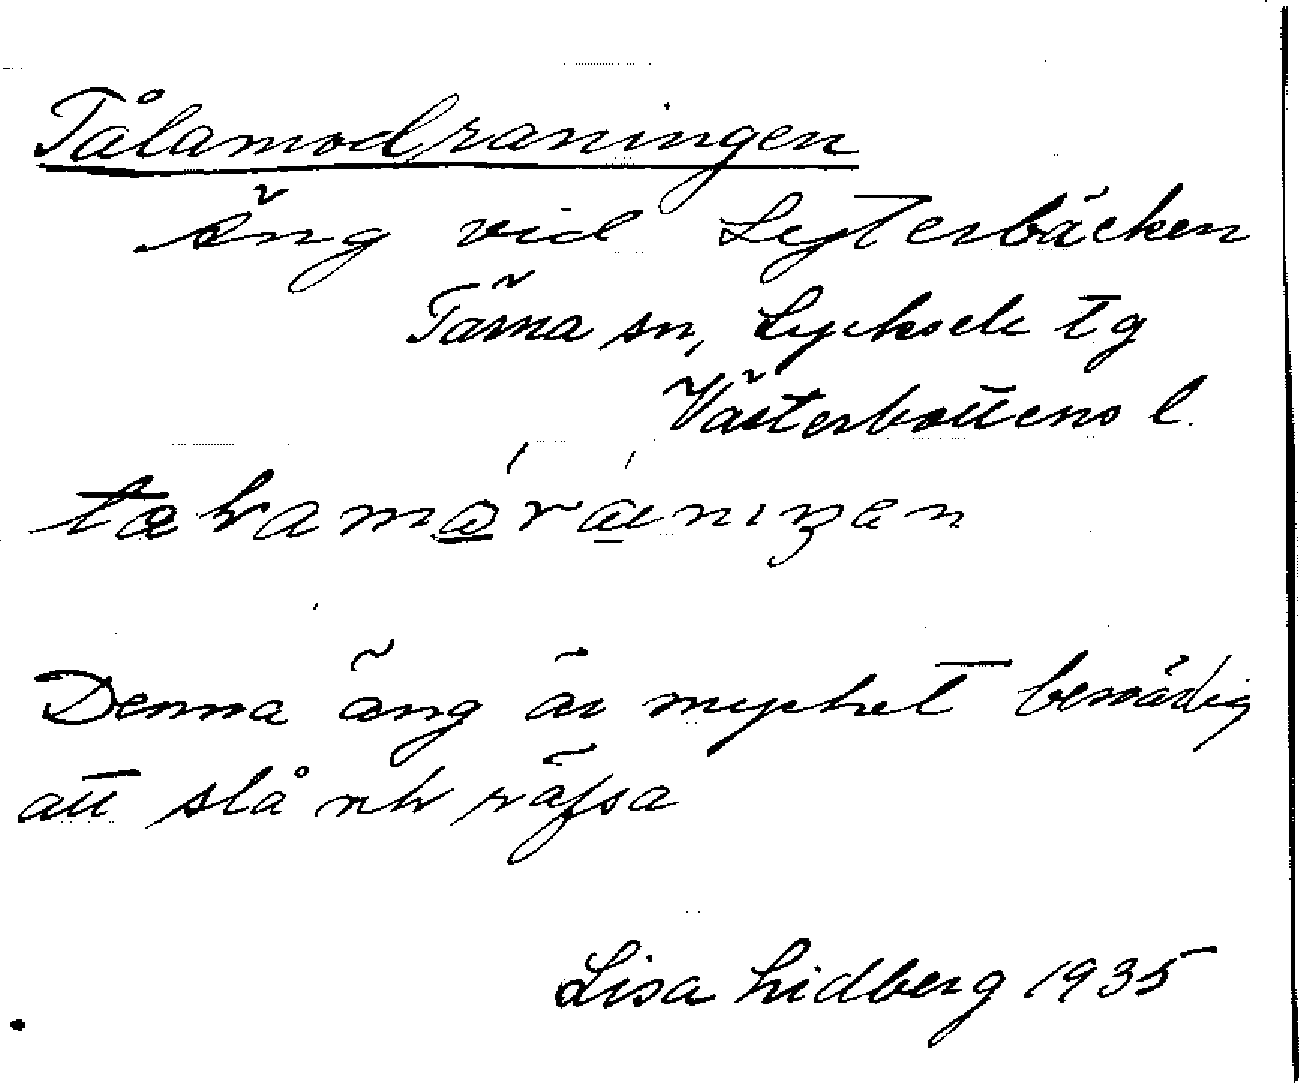 Tålamodraningen
äng vid Lejterbäcken
Tärna sn, Lycksele tg
Västerbottens l.
Denna äng är mycket besvärlig
att slå och räfsa
Lisa Lidberg 1935